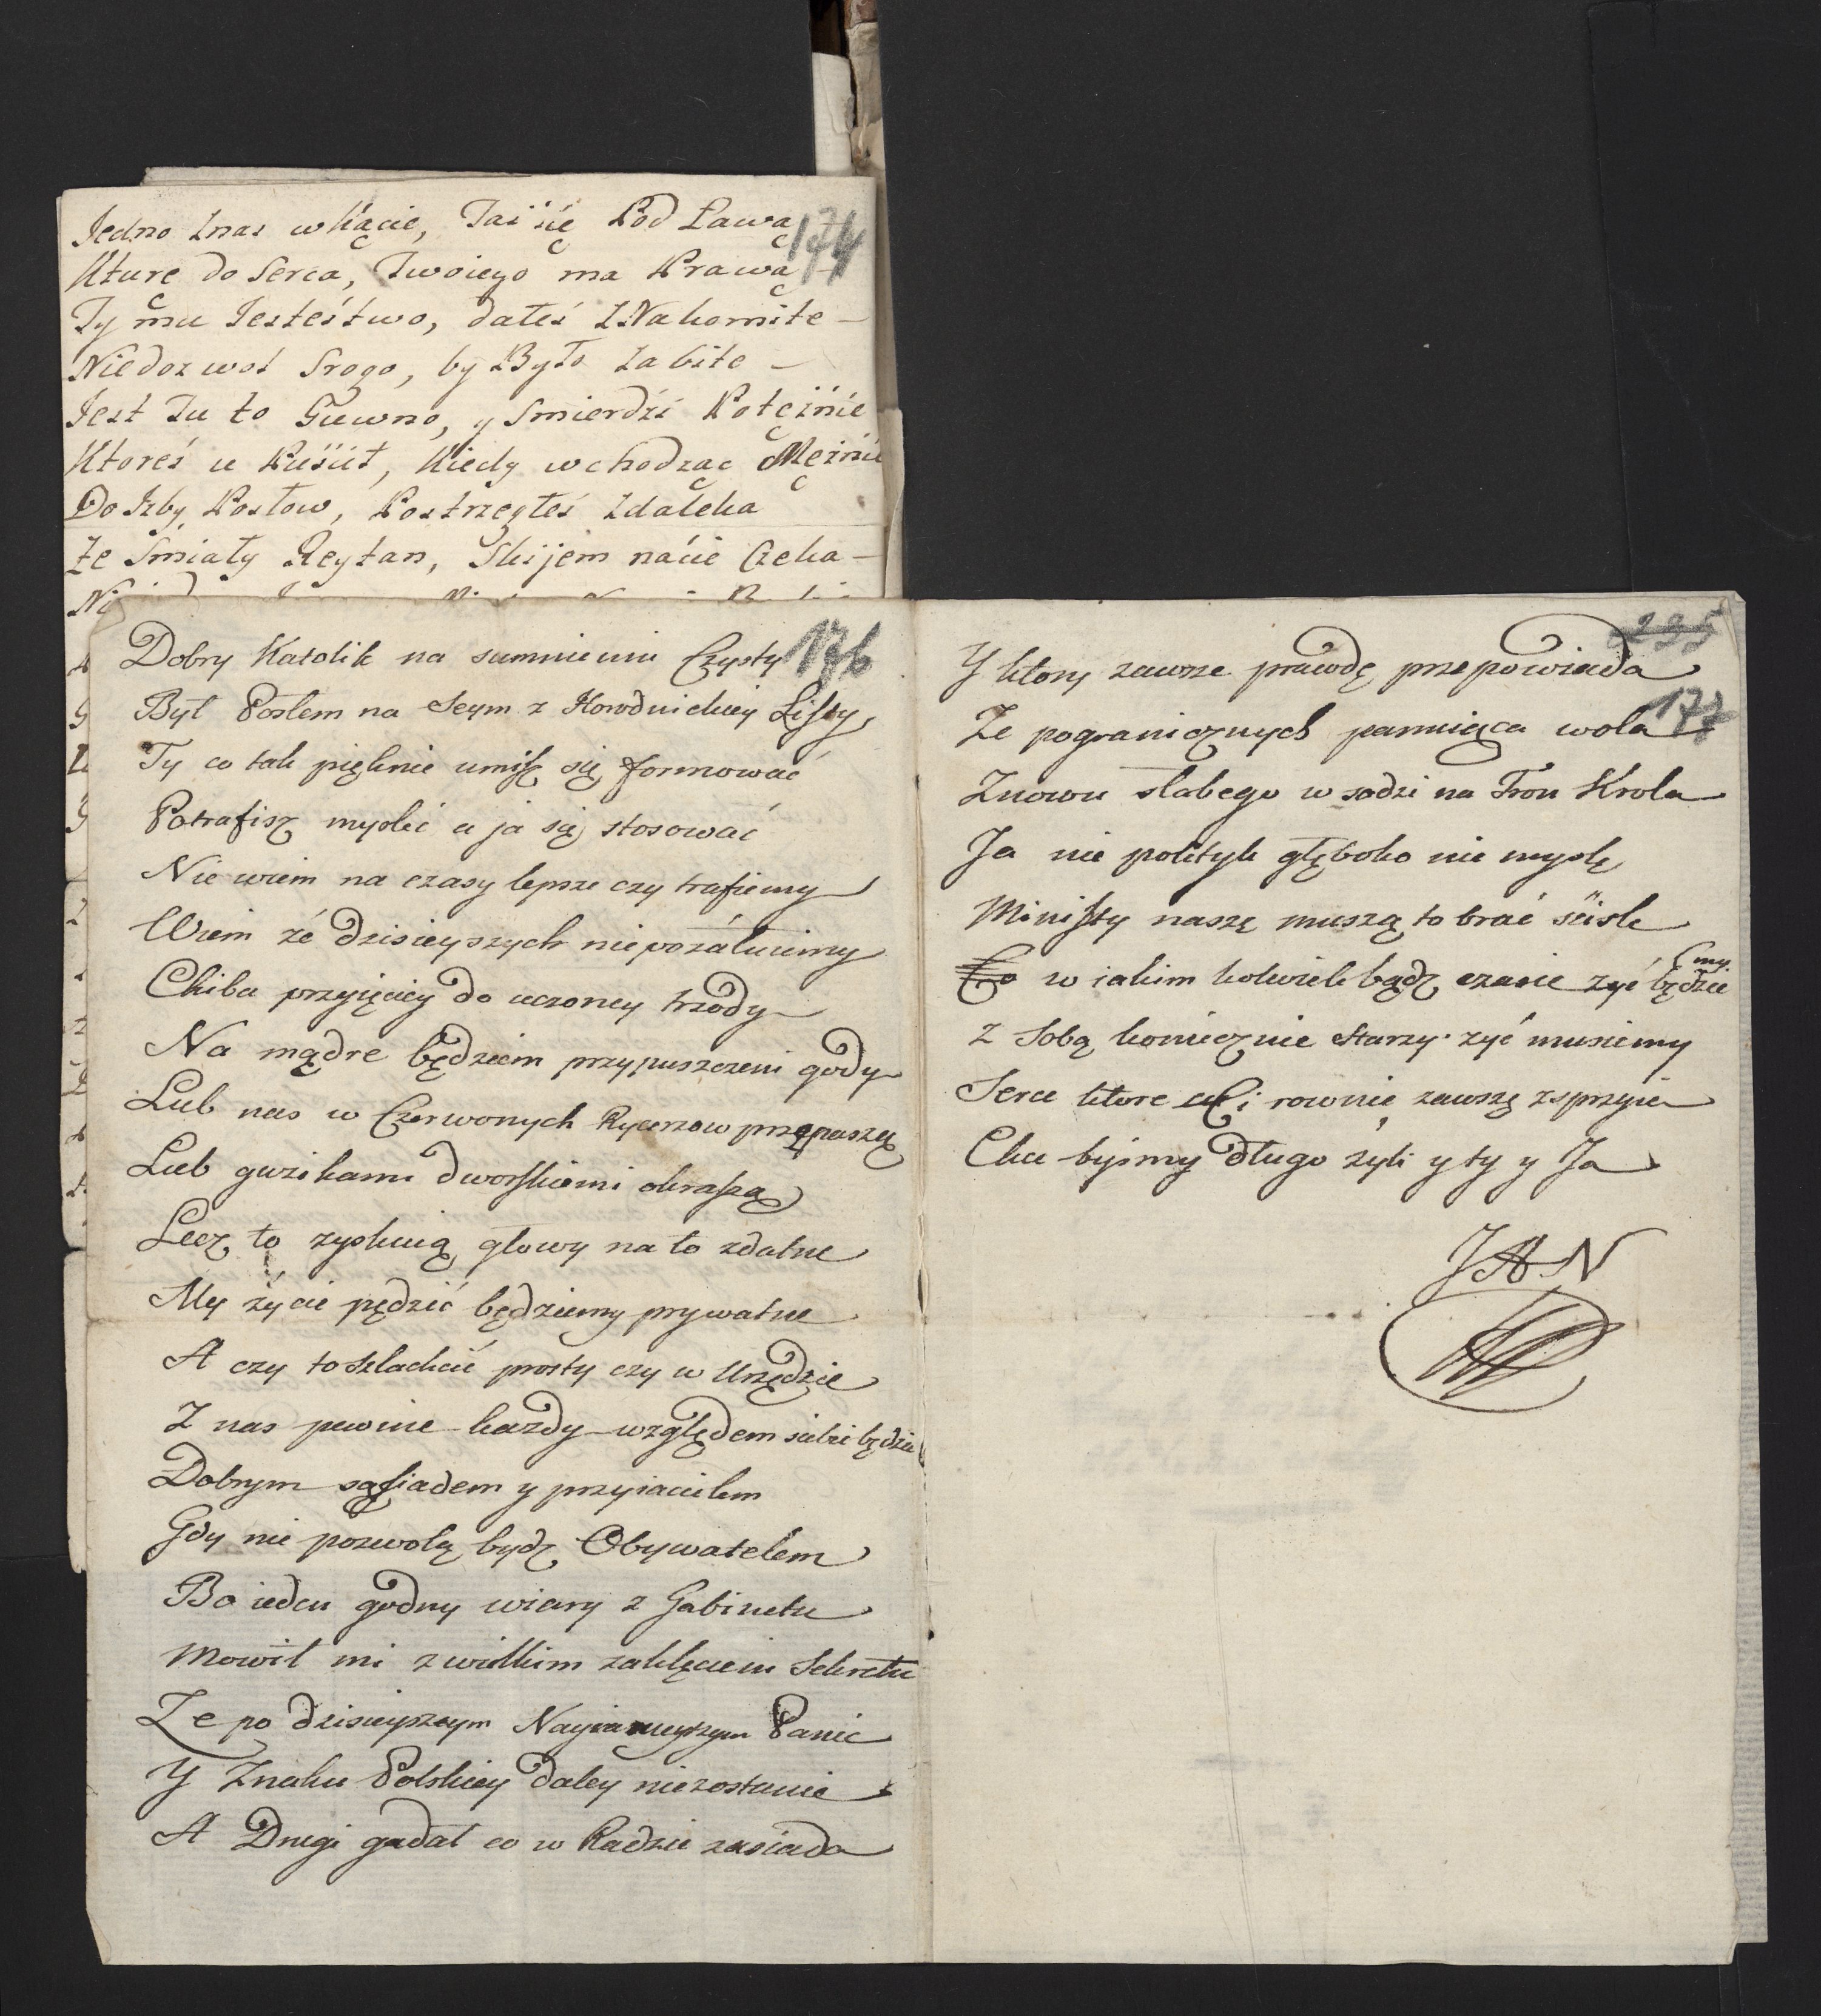 174
Jedno znas w Kącie, Tai się Pod Ławą
Kturę do Serca, Twoiego ma Prawą
Ty mu Jestéstwo, dałeś ZNakomite –
Niedozwol Srogo, by Było zabite –
Jest Tu to Guwno, y Smierdźi Potęźńie
Ktoreś u Puśćił, Kiedy wchodząc Męźńie
Do Izby Posłow, Postrzegłeś zdaleka
że Smiały Reytan, Skijem naćie Czeka –
176
Dobry Katolik na sumnieniu Czysty
Był Posłem na Seym z Kowdnickiey Listy,
Ty co tak pięknie umisz się formować
Potrafisz myslić a ja się stosować
Nie wiem na czasy lepsze czy trafiemy
Wiem źe dzisieyszych nie pozáłuiemy
Chiba przyięciey do uczoney trzody
Na mądre będziem przypuszczeni gody
Lub nas w Czerwonych Rycerzow przepaszą
Lub guzikami dworskiemi okraszą
Lecz to zyskuią głowy na to zdatne
My życie pędzić będziemy prywatne
A czy to szlachcić prosty czy w Urzędzie
Z nas pewnie każdy względem siebie będzie
Dobrym sąsiadem y przyiacielem
Gdy nie pozwolą bydz Obywatelem
Bo ieden godny wiary z Gabinetu
Mowił mi z wielkim zaklęciem Sekretu
Ze po dzisieyszym Nayiasnieyszym Panie
Y Znaku Polskiey daley nie zostanie
A Drugi gadał co w Radzie zasiada
225
177
Y ktory zawsze prawdę przepowiada
Ze pogranicznych panuiąca wola
Znowu słabego w sadzi na Tron Krola
Ja nie polityk głęboko nie myslę
Ministy naszę muszą to brać ściśle
Co w iakim kolwiek bądz czasie zyć będzie my
z Sobą koniecznie Starzy zyć musiemy
Serce ktore Ci rownie zawszę zsprzyia
Chce byśmy długo żyli y ty y Ja
JAN